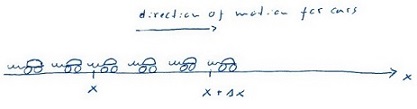 direction of motion for cars
x
x + Δx
x